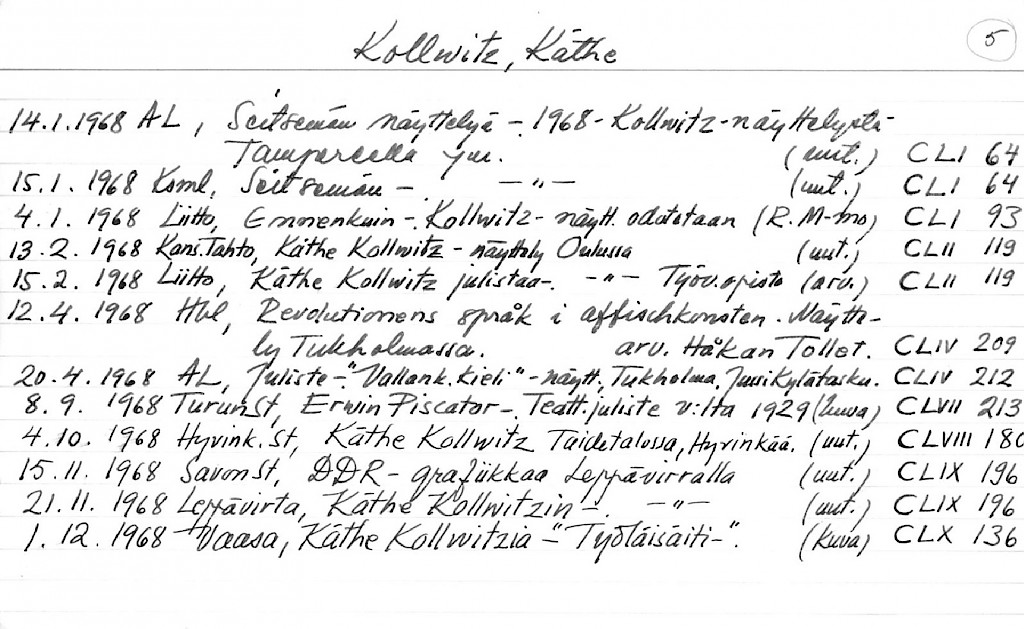 Kollwitz, Käthe
5
14.1.1968 AL, Seitsemän näyttelyä - 1968 - Kollwitz-näyttelystä
Tampereella ym. (uut.) CLI 64
15.1.1968 Koml, Seitsemän - —"— (uut.) CLI 64
4.1.1968 Liitto, Ennenkuin - Kollwitz-näytt. odotetaan (R.M-mo) CLI 93
13.2.1968 Kans.Tahto, Käthe Kollwitz-näyttely Oulussa (uut.) CLII 119
15.2.1968 Liitto, Käthe Kollwitz julistaa-. —"— Työv.opisto (arv.) CLII 119
12.4.1968 Hbl, Revolutionens språk i affischkonsten. Näytte-
ly Tukholmassa. arv. Håkan Tollet. CLIV 209
20.4.1968 AL, Juliste-."Vallank.kieli"-näytt. Tukholma. Jussi Kylätasku. CLIV 212
8.9.1968 TurunSt, Erwin Piscator-. Teatt.juliste v:lta 1929 (kuva) CLVII 213
4.10.1968 Hyvink.St, Käthe Kollwitz Taidetalossa, Hyvinkää. (uut.) CLVIII 180
15.11.1968 SavonSt, DDR-grafiikkaa Leppävirralla (uut.) CLIX 196
21.11.1968 Leppävirta, Käthe Kollwitzin-. —"— (uut.) CLIX 196
1.12.1968 Vaasa, Käthe Kollwitzia - "Työläisäiti-". (kuva) CLX 136